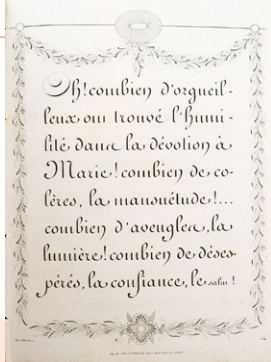 Oh! combien d'orgueil-
leux ont trouvé l'humi-
lité dans la dévotion à
Marie! combien de co-
lères, la mansuétude!...
combien d'aveugles, la
lumière! combien de déses-
pérés, la confiance, le salut!